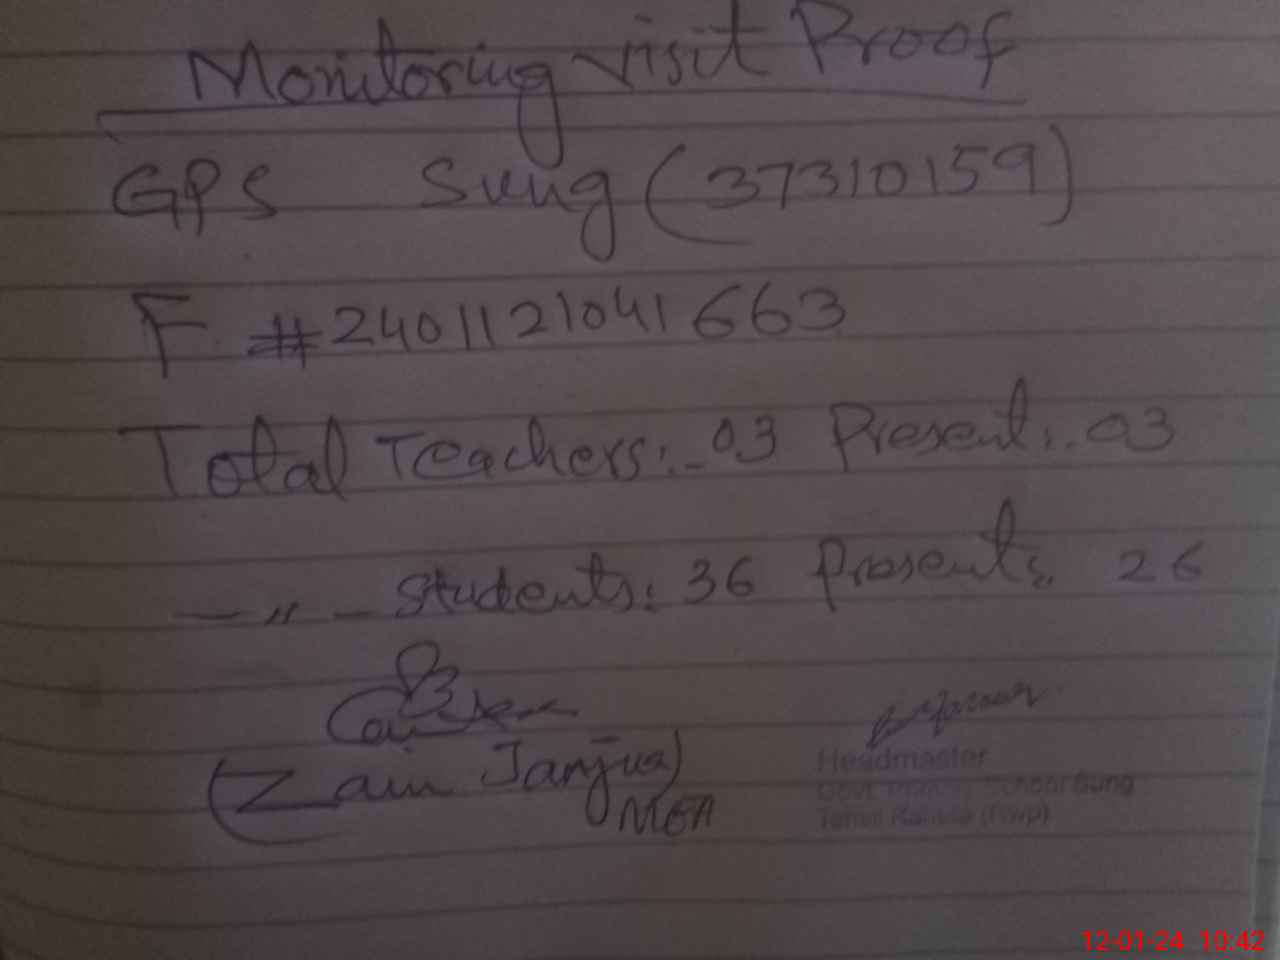 Monitoring visit Proof
GPS Sung (37310159)
F #2401121041663
Total Teachers:- 03 Present:. 03
—〃— Students: 36 Presents:. 26
(Zain Janjua)
MEA
Headmaster
Govt. Primary School Sung
Tehsil (Rwp)
12-01-24 10:42